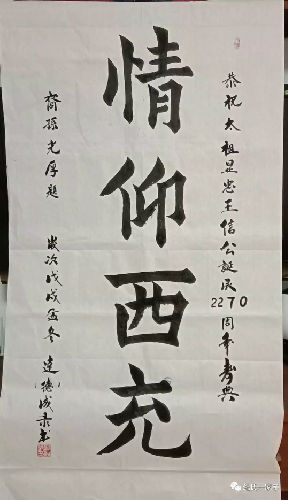 恭祝太祖显忠王信公誕辰2270周年寿典
情仰西充
裔孫光厚题
歲次戊戌孟冬 達(德)成录书